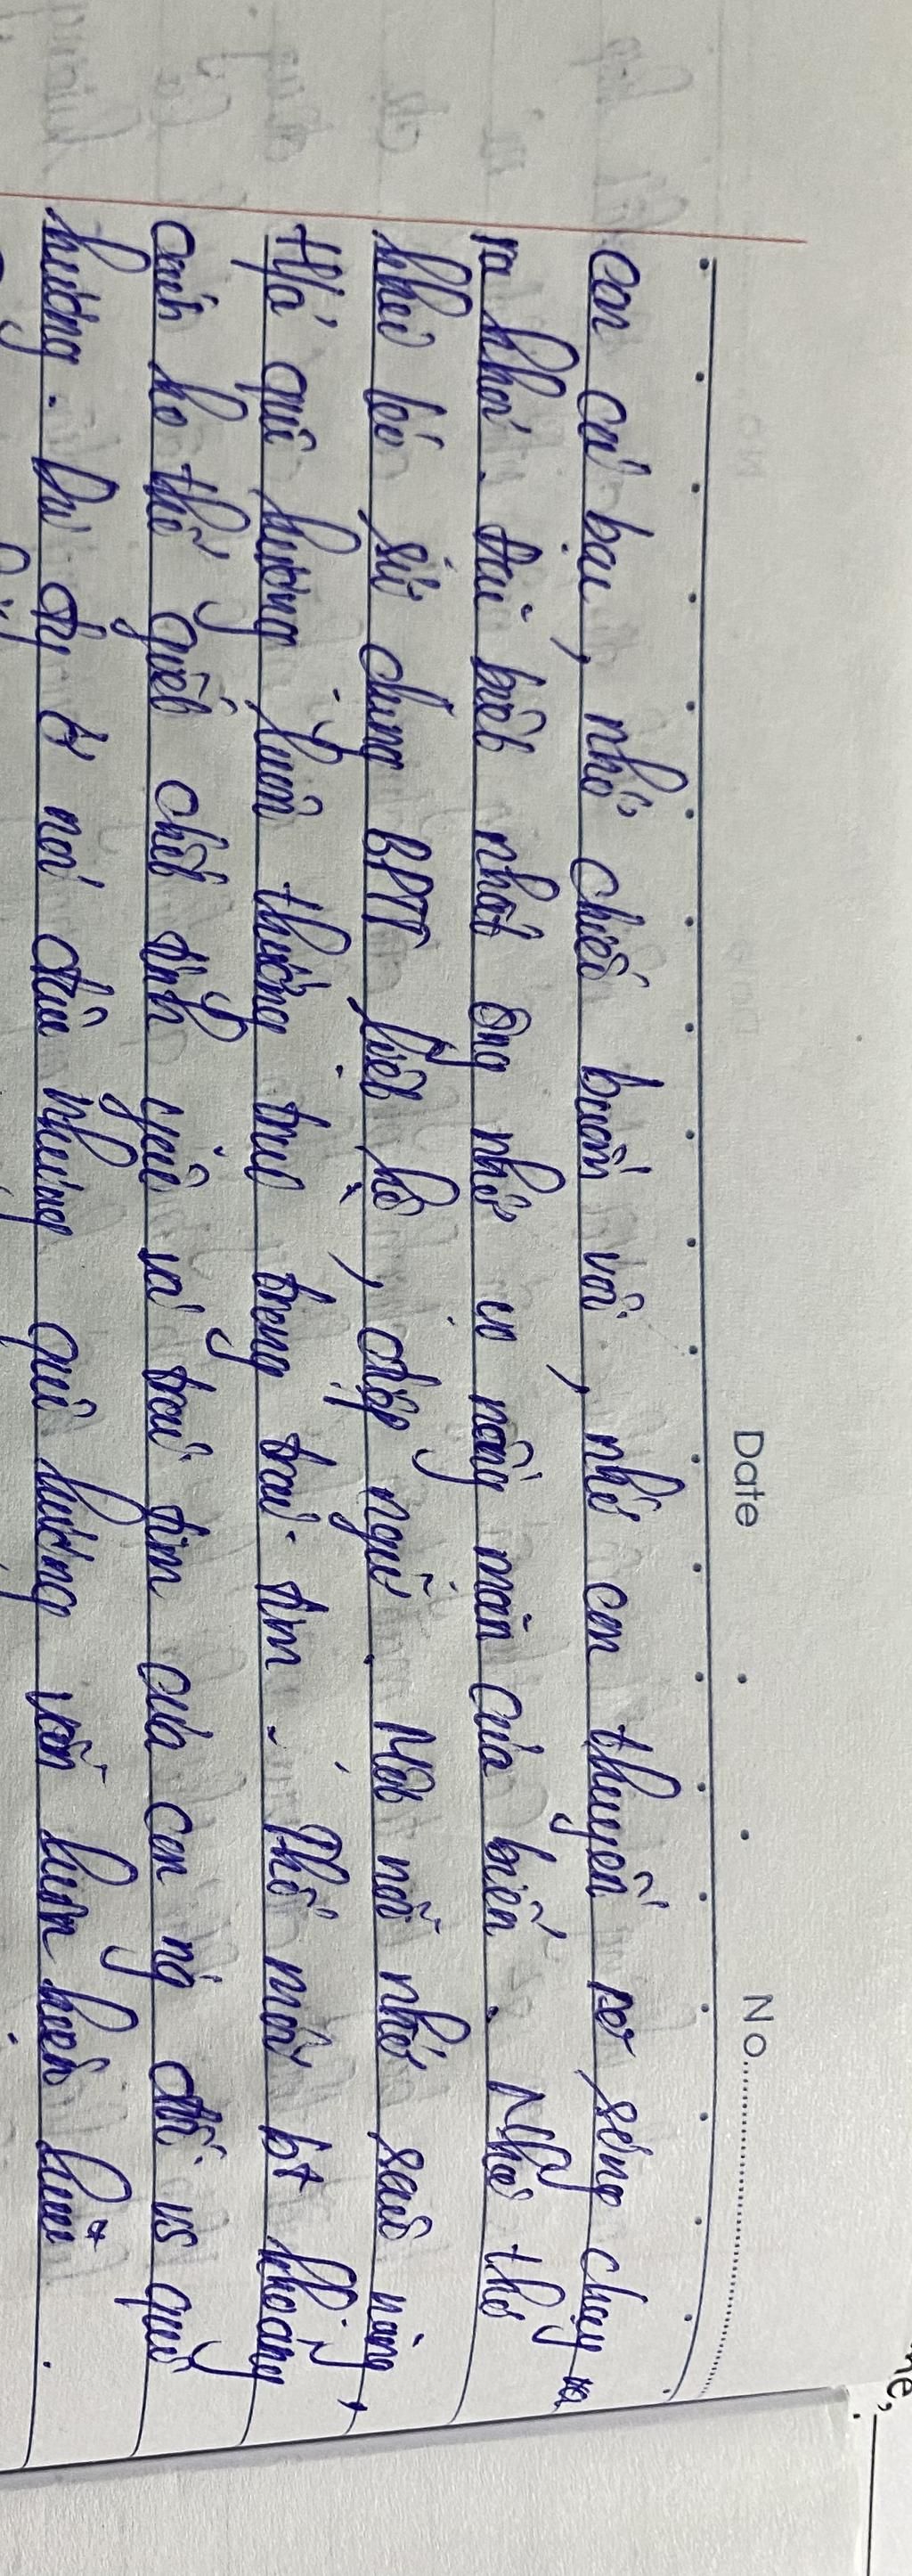 Date No
con cá bạc, nhớ chiếc buồm vôi, nhớ con thuyền rẽ sóng chạy ra
ra khơi. Đặc biệt nhất ông nhớ nồng mặn của biển. Nhà thơ
khéo léo sử dụng BPTT liệt kê, điệp ngữ. Một nỗi nhớ sâu nặng,
thơ quê hương luôn thường trực trong trái tim. Thơ mới bt khoảng
cách ko thể giết chết tình yêu và trái tim của con ng đối vs quê
hương. Dù đi ở nơi đâu nhưng quê hương vẫn luôn hiện hữu.